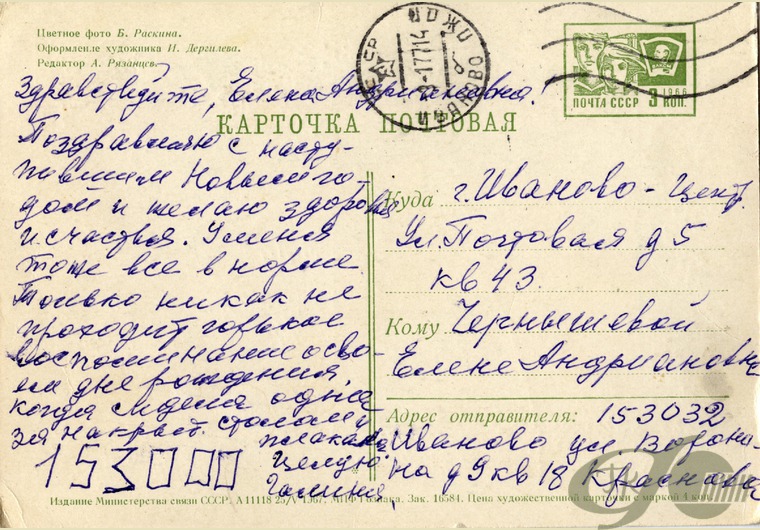 Цветное фото Б. Раскина.
Оформление художника И. Дергилева.
Редактор А. Рязанцев.
ПОЧТА СССР 3 КОП.
1966
Здравствуйте, Елена Андриановна!
КАРТОЧКА ПОЧТОВАЯ
Поздравляю с насту-
пившим Новым го-
дом и желаю здоровья
и счастья. У меня
тоже все в норме.
Только никак не
проходит горькое
воспоминание о сво-
ем дне рождения,
когда сидела одна
за накрыт. столом и
плакала
Целую
Галина
Куда г. Иваново - Центр.
Ул. Почтовая д 5
кв 43.
Кому Чернышевой
Елене Андриановне
Адрес отправителя: 153032
Иваново ул. Ворони-
на д 9 кв 18 Краснова
153000
Издание Министерства связи СССР. А 11118 25/V-1967. МПФ Гознака. Зак. 16584. Цена художественной карточки с маркой 4 коп.